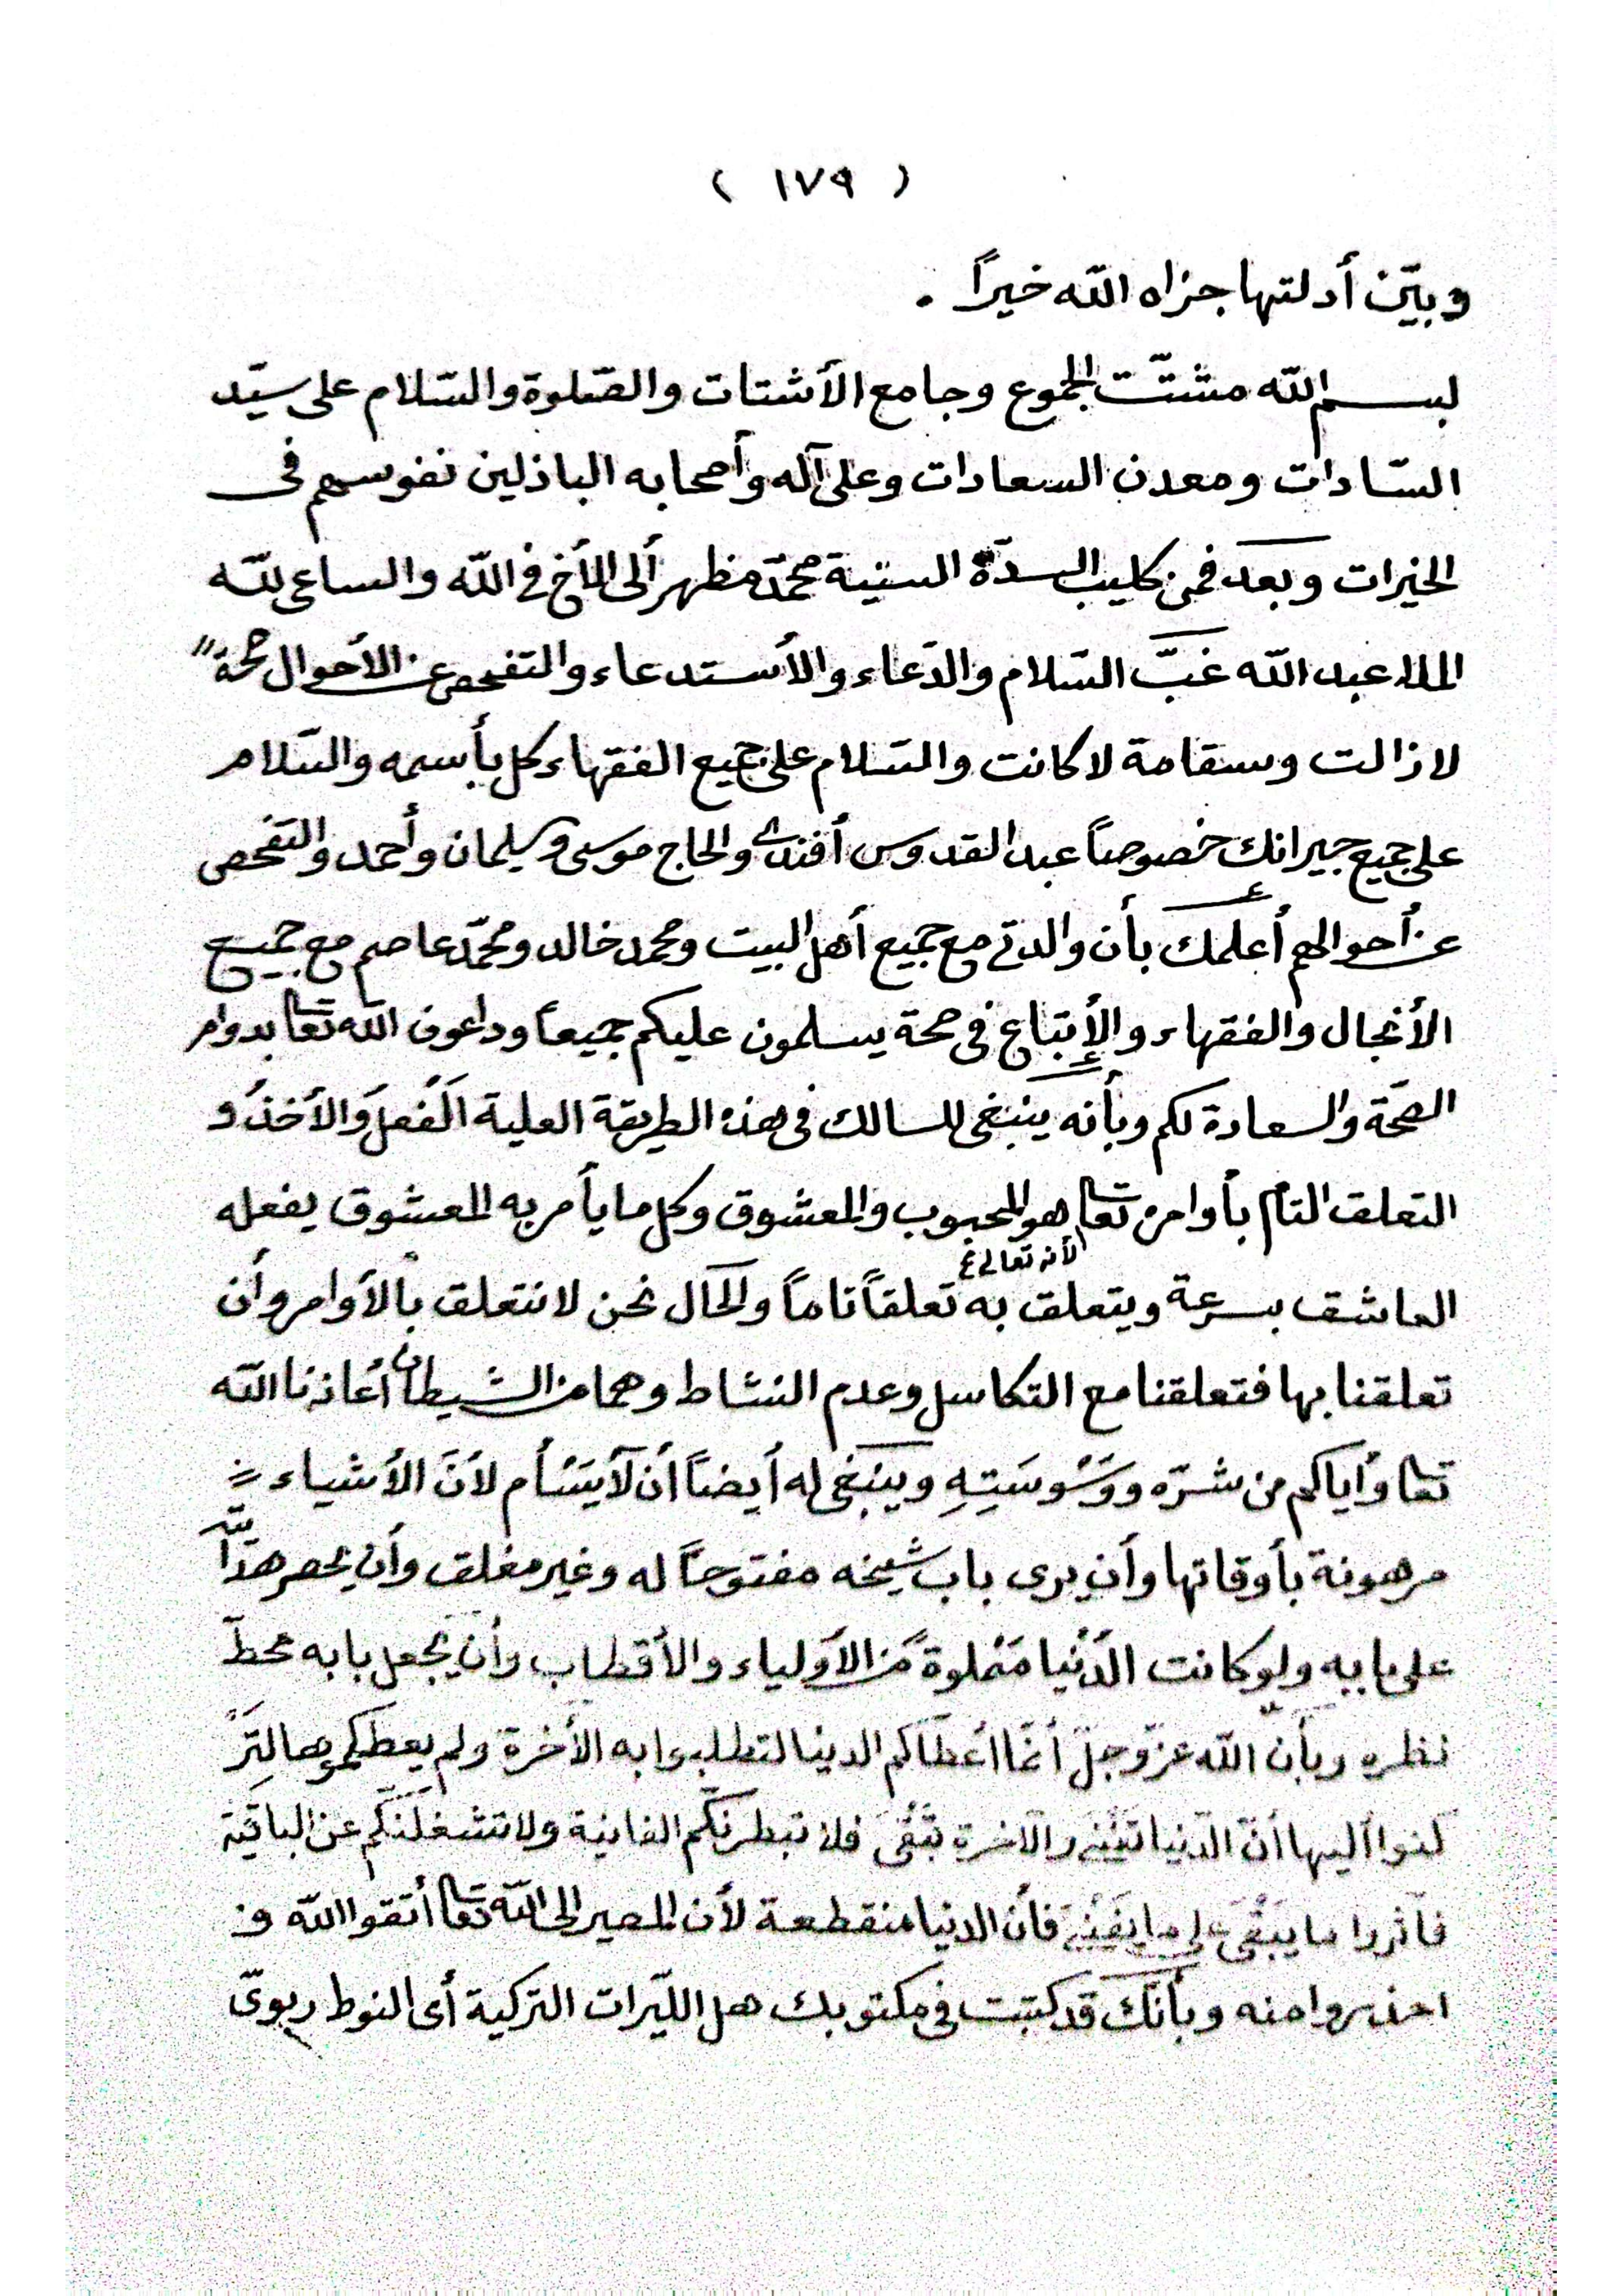 ( ١٧٩ )
وبيّن أدلتها جزاه الله خيراً .
بسم الله مشتّت الجموع وجامع الأشتات والصّلوة والسّلام على سيّد
السّادات ومعدن السعادات وعلى آله وأصحابه الباذلين نفوسهم فى
الخيرات وبعد فمن كليب السدّة السنية محمّد مظهر ألى الأخ فى الله والساعى لله
الملا عبد الله غبّ السّلام والدّعاء والأستدعاء والتفحص عن الأحوال صحة"
لا زالت وسقامة لا كانت والسّلام على جميع الفقهاء كل بأسمه والسّلام
على جميع جيرانك خصوصاً عبد القدوس أفندى والحاج موسى وسليمان وأحمد والتفحص
عن أحوالهم أعلمك بأن والدتى مع جميع أهل البيت ومحمد خالد ومحمّد عاصم مع جميع
الأنجال والفقهاء والأتباع فى صحة يسلمون عليكم جميعاً وداعون الله تعا بدوام
الصّحة والسعادة لكم وبأنه ينبغى للسالك فى هذه الطريقة العلية الفعل والأخذ و
التعلق التام بأوامره تعا هو المحبوب والمعشوق وكل ما يأمر به المعشوق يفعله
لأنه تعالى ع
العاشق بسرعة ويتعلق به تعلقاً تاماً والحال نحن لا نتعلق بالأوامر وأن
تعلقنا بها فتعلقنا مع التكاسل وعدم النشاط وهما من الشيطان أعاذنا الله
تعا وأياكم من شرّه ووَسْوسَتِهِ وينبغى له أيضاً أن لا يَسْأم لأنّ الأشياء
مرهونة بأوقاتها وأن يرى باب شيخه مفتوحاً له وغير مغلق وأن يحصر هدايته
على بابه ولو كانت الدّنيا مَمْلوةً من الأولياء والأقطاب وأن يجعل بابه محطّ
نظره وبأن الله عزّ وجلّ أنّما أعطاكم الدنيا لتطلبوا به الأخرة ولم يعطكموها لتَرْ
كنوا أليها أنّ الدّنيا تَفْنى والآخرة تَبْقى فلا تبطرنكّم الفانية ولا تشغلنّكم عن الباقية
فآثروا ما يَبْقى على ما يَفْنى فأن الدنيا منقطعة لأن المصير الى الله تعا أتقوا الله و
احذروا منه وبأنّك قد كتبت فى مكتوبك هل الليّرات التركية أى النوط ربوىّ